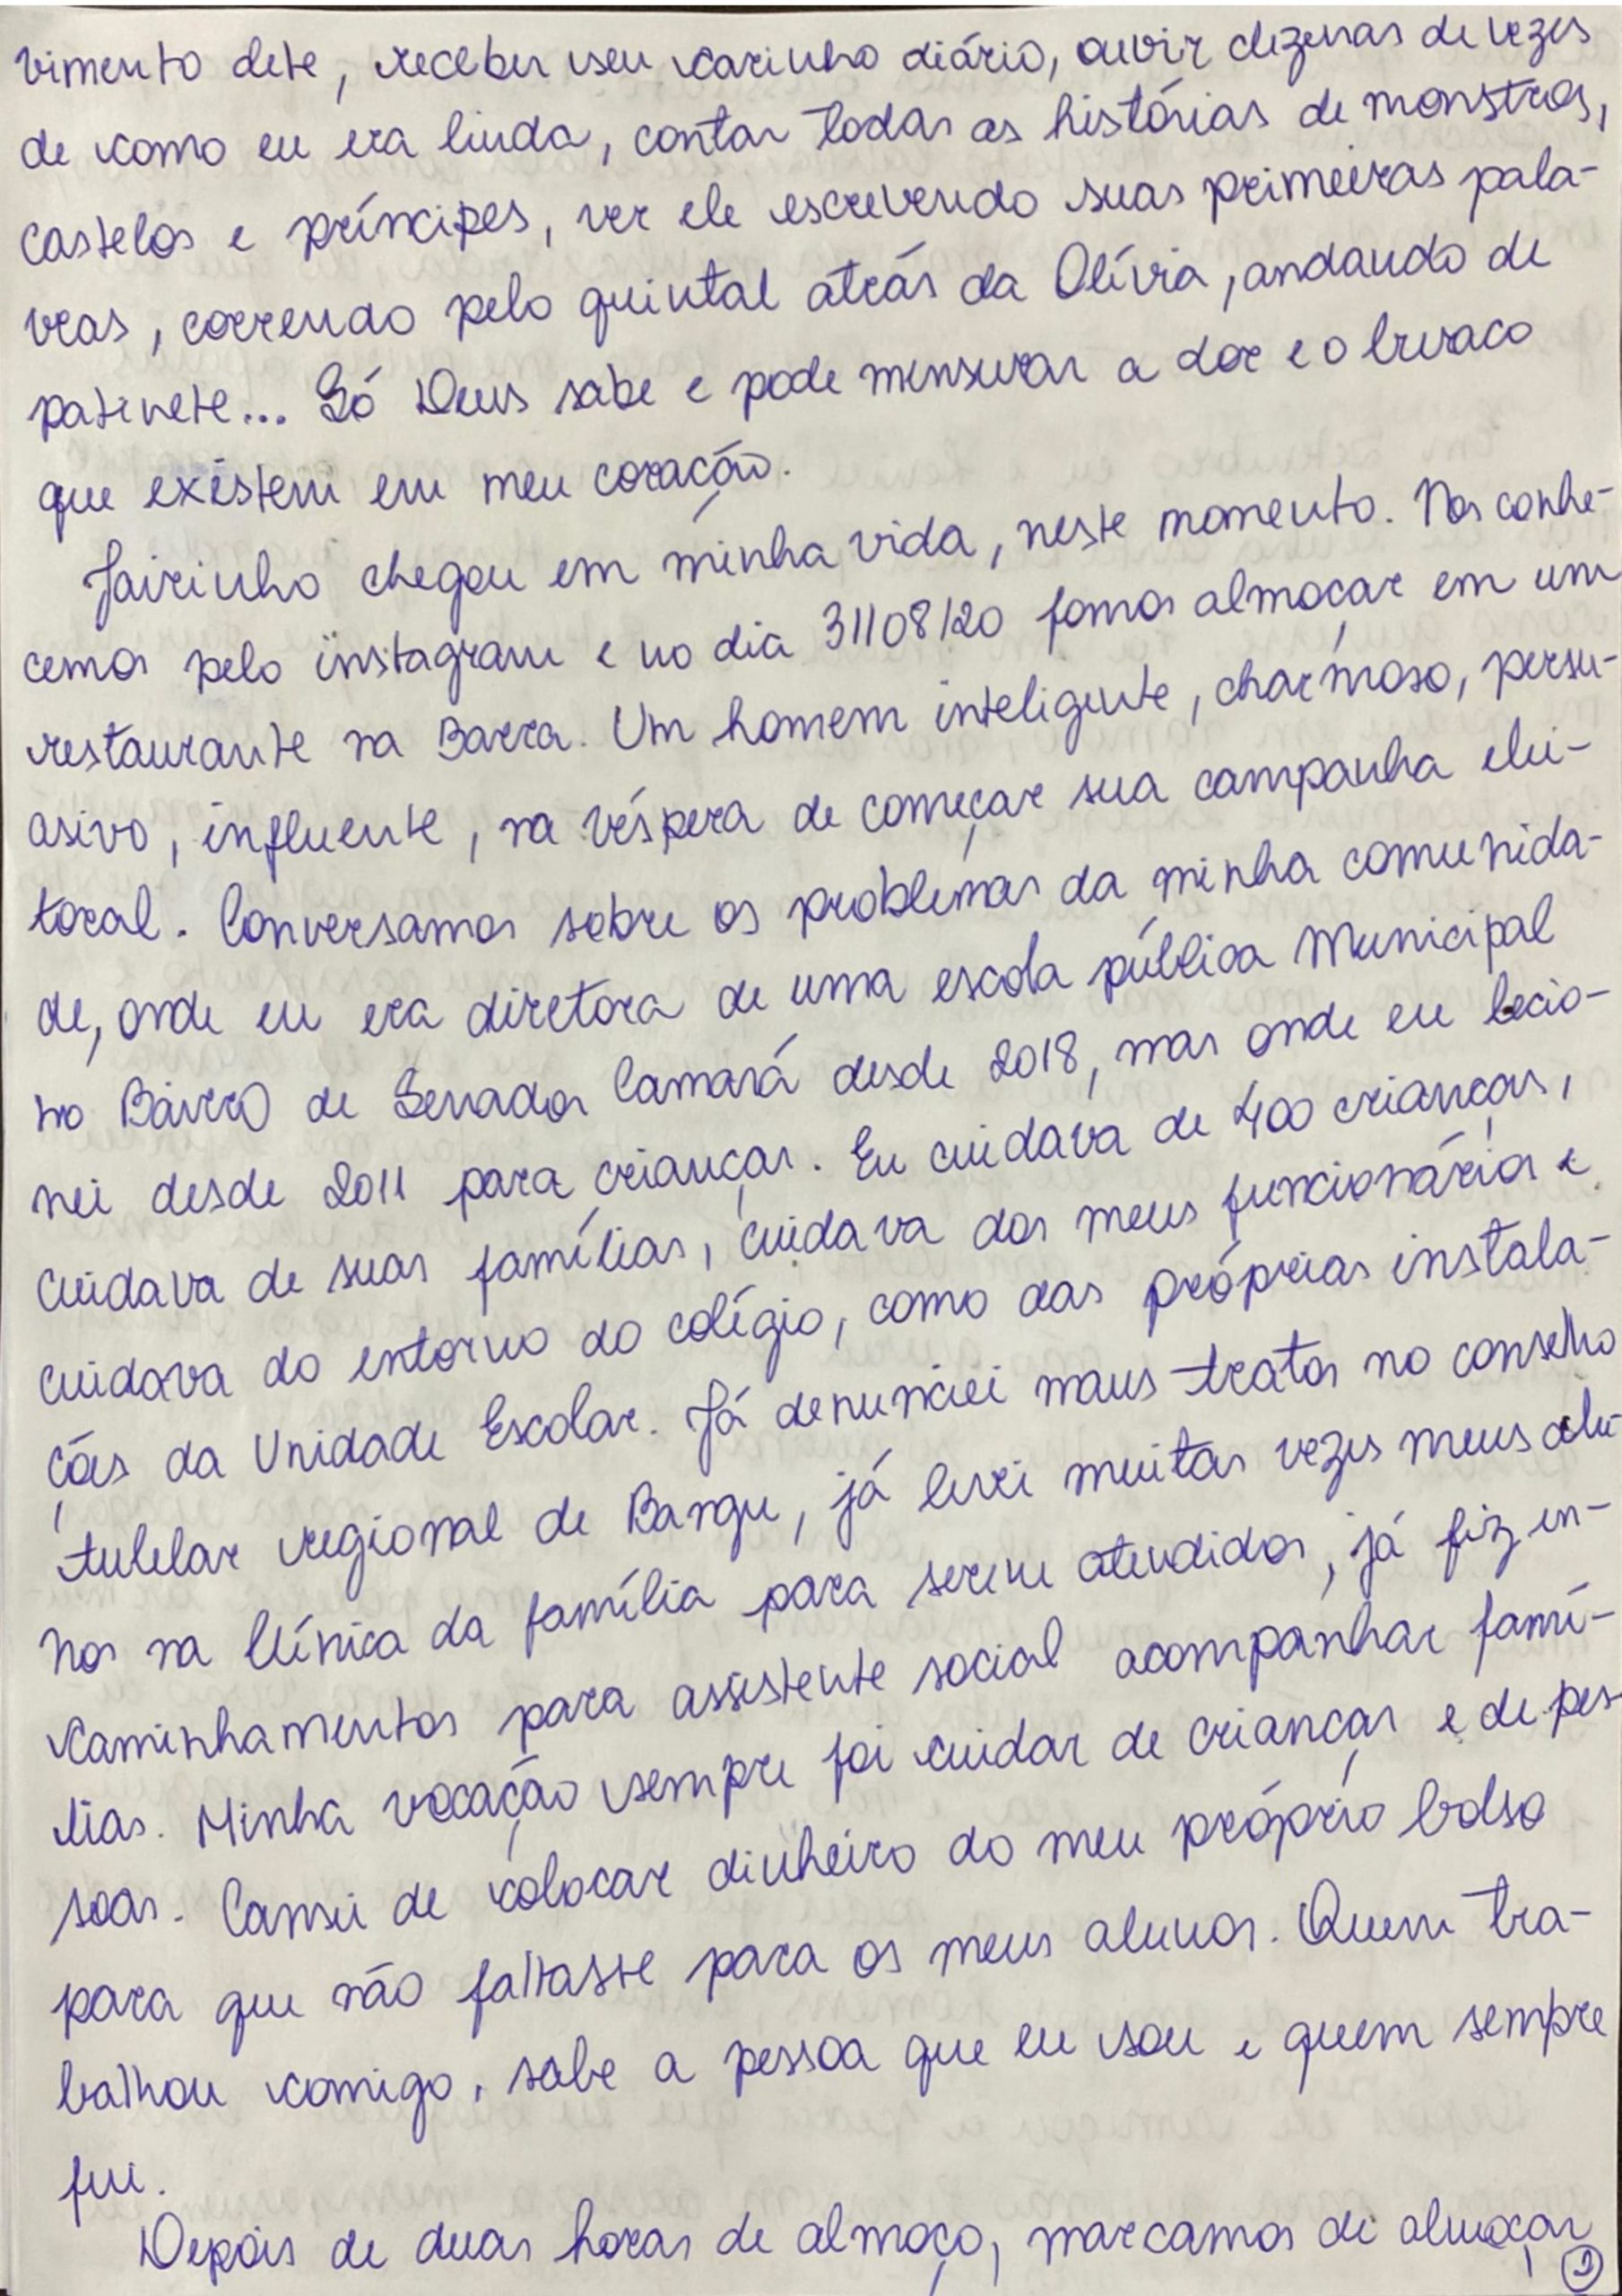 vimento dele, receber seu carinho diário, ouvir dezenas de vezes
de como eu era linda, contar todas as histórias de monstros,
castelos e príncipes, ver ele escrevendo suas primeiras pala-
vras, correndo pelo quintal atrás da Olívia, andando de
patinete... Só Deus sabe e pode mensurar a dor e o buraco
que existem em meu coração.
Jairinho chegou em minha vida, neste momento. Nos conhe-
cemos pelo instagram e no dia 31/08/20 fomos almoçar em um
restaurante na Barra. Um homem inteligente, charmoso, persu-
asivo, influente, na véspera de começar sua campanha elei-
toral. Conversamos sobre os problemas da minha comunida-
de, onde eu era diretora de uma escola pública Municipal
no Bairro de Senador Camará desde 2018, mas onde eu lecio-
nei desde 2011 para crianças. Eu cuidava de 400 crianças,
cuidava de suas famílias, cuidava dos meus funcionários e
cuidava do entorno do colégio, como das próprias instala-
ções da Unidade Escolar. Já denunciei maus tratos no conselho
tutelar regional de Bangu, já levei muitas vezes meus alu-
nos na Clínica da família para serem atendidos, já fiz en-
caminhamentos para assistente social acompanhar famí-
lias. Minha vocação sempre foi cuidar de crianças e de pes-
soas. Cansei de colocar dinheiro do meu próprio bolso
para que não faltasse para os meus alunos. Quem tra-
balhou comigo, sabe a pessoa que eu sou e quem sempre
fui.
Depois de duas horas de almoço, marcamos de almoçar